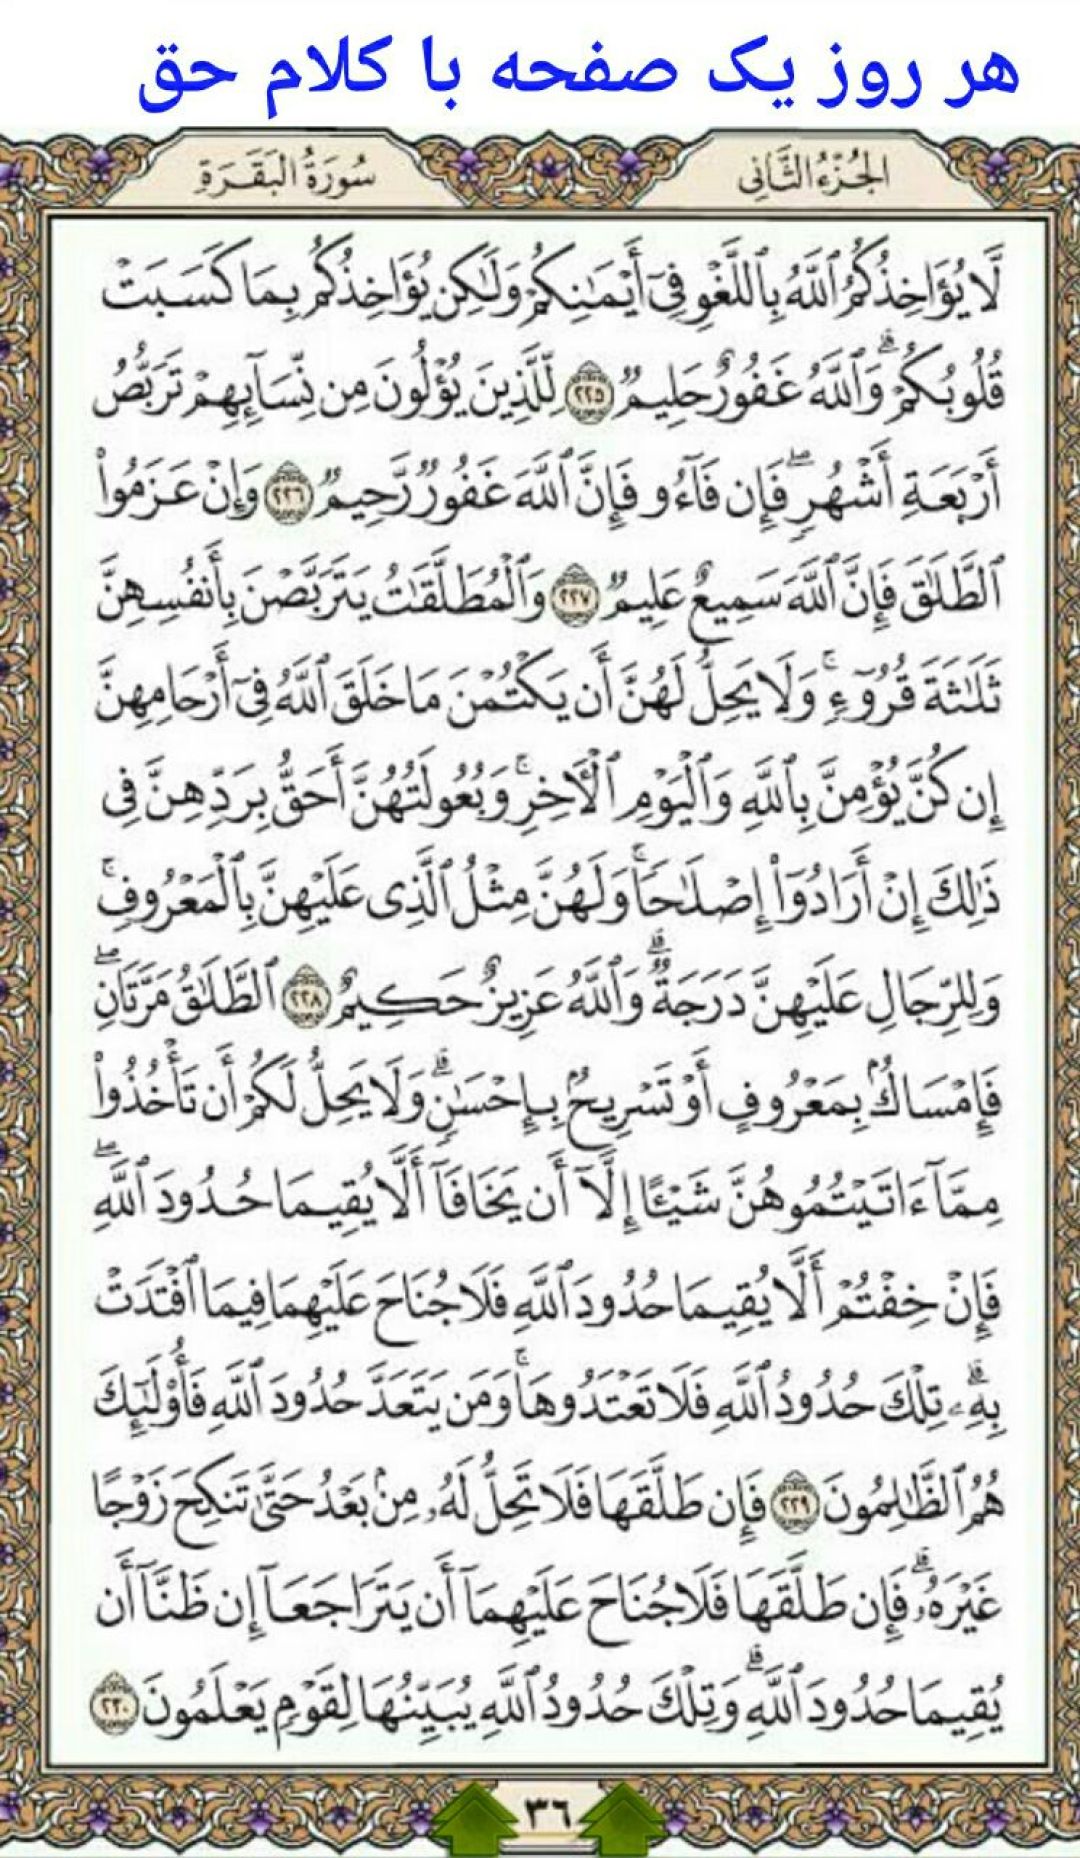 هر روز یک صفحه با کلام حق
الجُزْءُ الثَّانِي
سُورَةُ البَقَرَةِ
لَّا يُؤَاخِذُكُمُ ٱللَّهُ بِٱللَّغْوِ فِىٓ أَيْمَٰنِكُمْ وَلَٰكِن يُؤَاخِذُكُم بِمَا كَسَبَتْ
قُلُوبُكُمْ ۗ وَٱللَّهُ غَفُورٌ حَلِيمٌ ٢٢٥ لِّلَّذِينَ يُؤْلُونَ مِن نِّسَآئِهِمْ تَرَبُّصُ
أَرْبَعَةِ أَشْهُرٍ ۖ فَإِن فَآءُو فَإِنَّ ٱللَّهَ غَفُورٌ رَّحِيمٌ ٢٢٦ وَإِنْ عَزَمُوا۟
ٱلطَّلَٰقَ فَإِنَّ ٱللَّهَ سَمِيعٌ عَلِيمٌ ٢٢٧ وَٱلْمُطَلَّقَٰتُ يَتَرَبَّصْنَ بِأَنفُسِهِنَّ
ثَلَٰثَةَ قُرُوٓءٍ ۚ وَلَا يَحِلُّ لَهُنَّ أَن يَكْتُمْنَ مَا خَلَقَ ٱللَّهُ فِىٓ أَرْحَامِهِنَّ
إِن كُنَّ يُؤْمِنَّ بِٱللَّهِ وَٱلْيَوْمِ ٱلْءَاخِرِ ۚ وَبُعُولَتُهُنَّ أَحَقُّ بِرَدِّهِنَّ فِى
ذَٰلِكَ إِنْ أَرَادُوٓا۟ إِصْلَٰحًا ۚ وَلَهُنَّ مِثْلُ ٱلَّذِى عَلَيْهِنَّ بِٱلْمَعْرُوفِ ۚ
وَلِلرِّجَالِ عَلَيْهِنَّ دَرَجَةٌ ۗ وَٱللَّهُ عَزِيزٌ حَكِيمٌ ٢٢٨ ٱلطَّلَٰقُ مَرَّتَانِ ۖ
فَإِمْسَاكٌۢ بِمَعْرُوفٍ أَوْ تَسْرِيحٌۢ بِإِحْسَٰنٍ ۗ وَلَا يَحِلُّ لَكُمْ أَن تَأْخُذُوا۟
مِمَّآ ءَاتَيْتُمُوهُنَّ شَيْـًٔا إِلَّآ أَن يَخَافَآ أَلَّا يُقِيمَا حُدُودَ ٱللَّهِ ۖ
فَإِنْ خِفْتُمْ أَلَّا يُقِيمَا حُدُودَ ٱللَّهِ فَلَا جُنَاحَ عَلَيْهِمَا فِيمَا ٱفْتَدَتْ
بِهِۦ ۗ تِلْكَ حُدُودُ ٱللَّهِ فَلَا تَعْتَدُوهَا ۚ وَمَن يَتَعَدَّ حُدُودَ ٱللَّهِ فَأُو۟لَٰٓئِكَ
هُمُ ٱلظَّٰلِمُونَ ٢٢٩ فَإِن طَلَّقَهَا فَلَا تَحِلُّ لَهُۥ مِنۢ بَعْدُ حَتَّىٰ تَنكِحَ زَوْجًا
غَيْرَهُۥ ۗ فَإِن طَلَّقَهَا فَلَا جُنَاحَ عَلَيْهِمَآ أَن يَتَرَاجَعَآ إِن ظَنَّآ أَن
يُقِيمَا حُدُودَ ٱللَّهِ ۗ وَتِلْكَ حُدُودُ ٱللَّهِ يُبَيِّنُهَا لِقَوْمٍ يَعْلَمُونَ ٢٣٠
٣٦